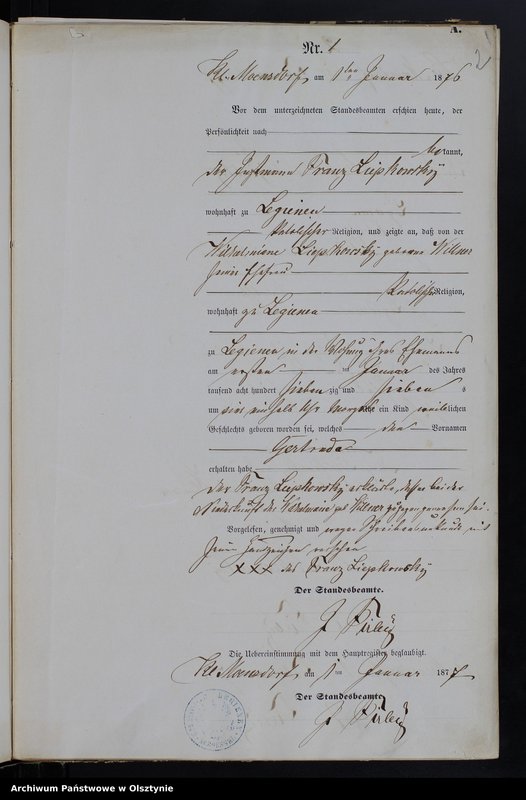 A.
2
Nr. 1
Kl. Moensdorf, am 1ten Januar 1876
Vor dem unterzeichneten Standesbeamten erschien heute, der
Persönlichkeit nach
bekannt,
der Franz Liepkowsky
wohnhaft zu Legienen
katolischer Religion, und zeigte an, daß von der
Liepkowsky geborne Wittner
seiner Ehefrau
Katolischer Religion,
wohnhaft zu Legienen
zu Legienen in der Wohnung ihres Ehemannes
am ersten Januar des Jahres
tausend acht hundert sieben zig und sieben
um vier ein halb Uhr Morgens ein Kind weiblichen
Geschlechts geboren worden sei, welches den Vornamen
Gertruda
erhalten habe
Der Franz Liepkowsky erklärte, daß er bei der
Niederkunft der geb Wittner zugegen gewesen sei.
Vorgelesen, genehmigt und wegen Schreibensunkunde mit
seinem Handzeichen versehen
XXX des Franz Liepkowsky
Der Standesbeamte.
Die Uebereinstimmung mit dem Hauptregister beglaubigt.
Kl. Moensdorf, am 1ten Januar 1877
Der Standesbeamte
Archiwum Państwowe w Olsztynie